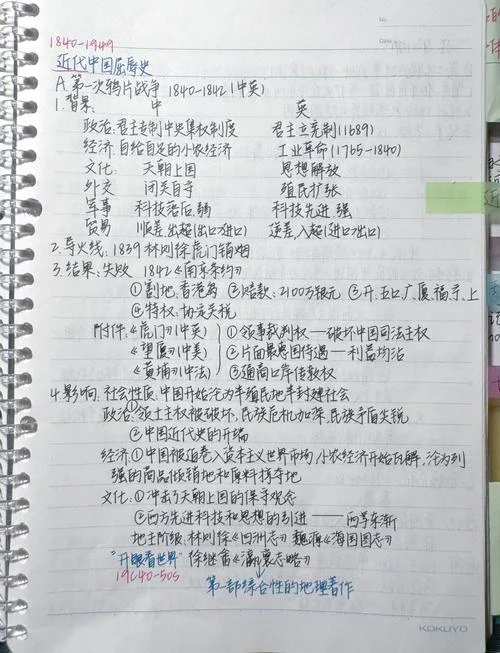 1840-1949
近代中国屈辱史
A. 第一次鸦片战争 1840-1842 (中英)
1. 背景: 中 英
政治: 君主专制中央集权制度 君主立宪制(1689)
经济: 自给自足的小农经济 工业革命(1765-1840)
文化: 天朝上国 思想解放
外交 闭关自守 殖民扩张
军事 科技落后, 弱 科技先进 强
贸易 顺差: 出超(出口>进口) 逆差, 入超(进口>出口)
2. 导火线: 1839 林则徐虎门销烟
3. 结果: 失败 1842《南京条约》
①割地: 香港岛 ②赔款: 2100万银元 ③开: 五口广、厦福宁上
④特权: 协定关税
附件: 《虎门》(中英) ①领事裁判权——破坏中国司法主权
《望厦》(中美) ②片面最惠国待遇——利益均沾
《黄埔》(中法) ③通商口岸传教权
4. 影响: 社会性质: 中国开始沦为半殖民地半封建社会
政治: ①领土主权被破坏, 民族危机加深, 民族矛盾
②中国近代史的开端
经济: ①中国被迫卷入资本主义世界市场, 小农经济开始瓦解, 沦为列
强的商品倾销地和原料掠夺地
文化: ①冲击了天朝上国的保守观念
②西方先进科技和思想的引进——西学东渐
地主阶级: 林则徐《四洲志》 魏源《海国图志》
"开眼看世界" 徐继畬《瀛寰志略》
19C40-50S
第一部综合性的地理著作
No.
Date
KOKUYO